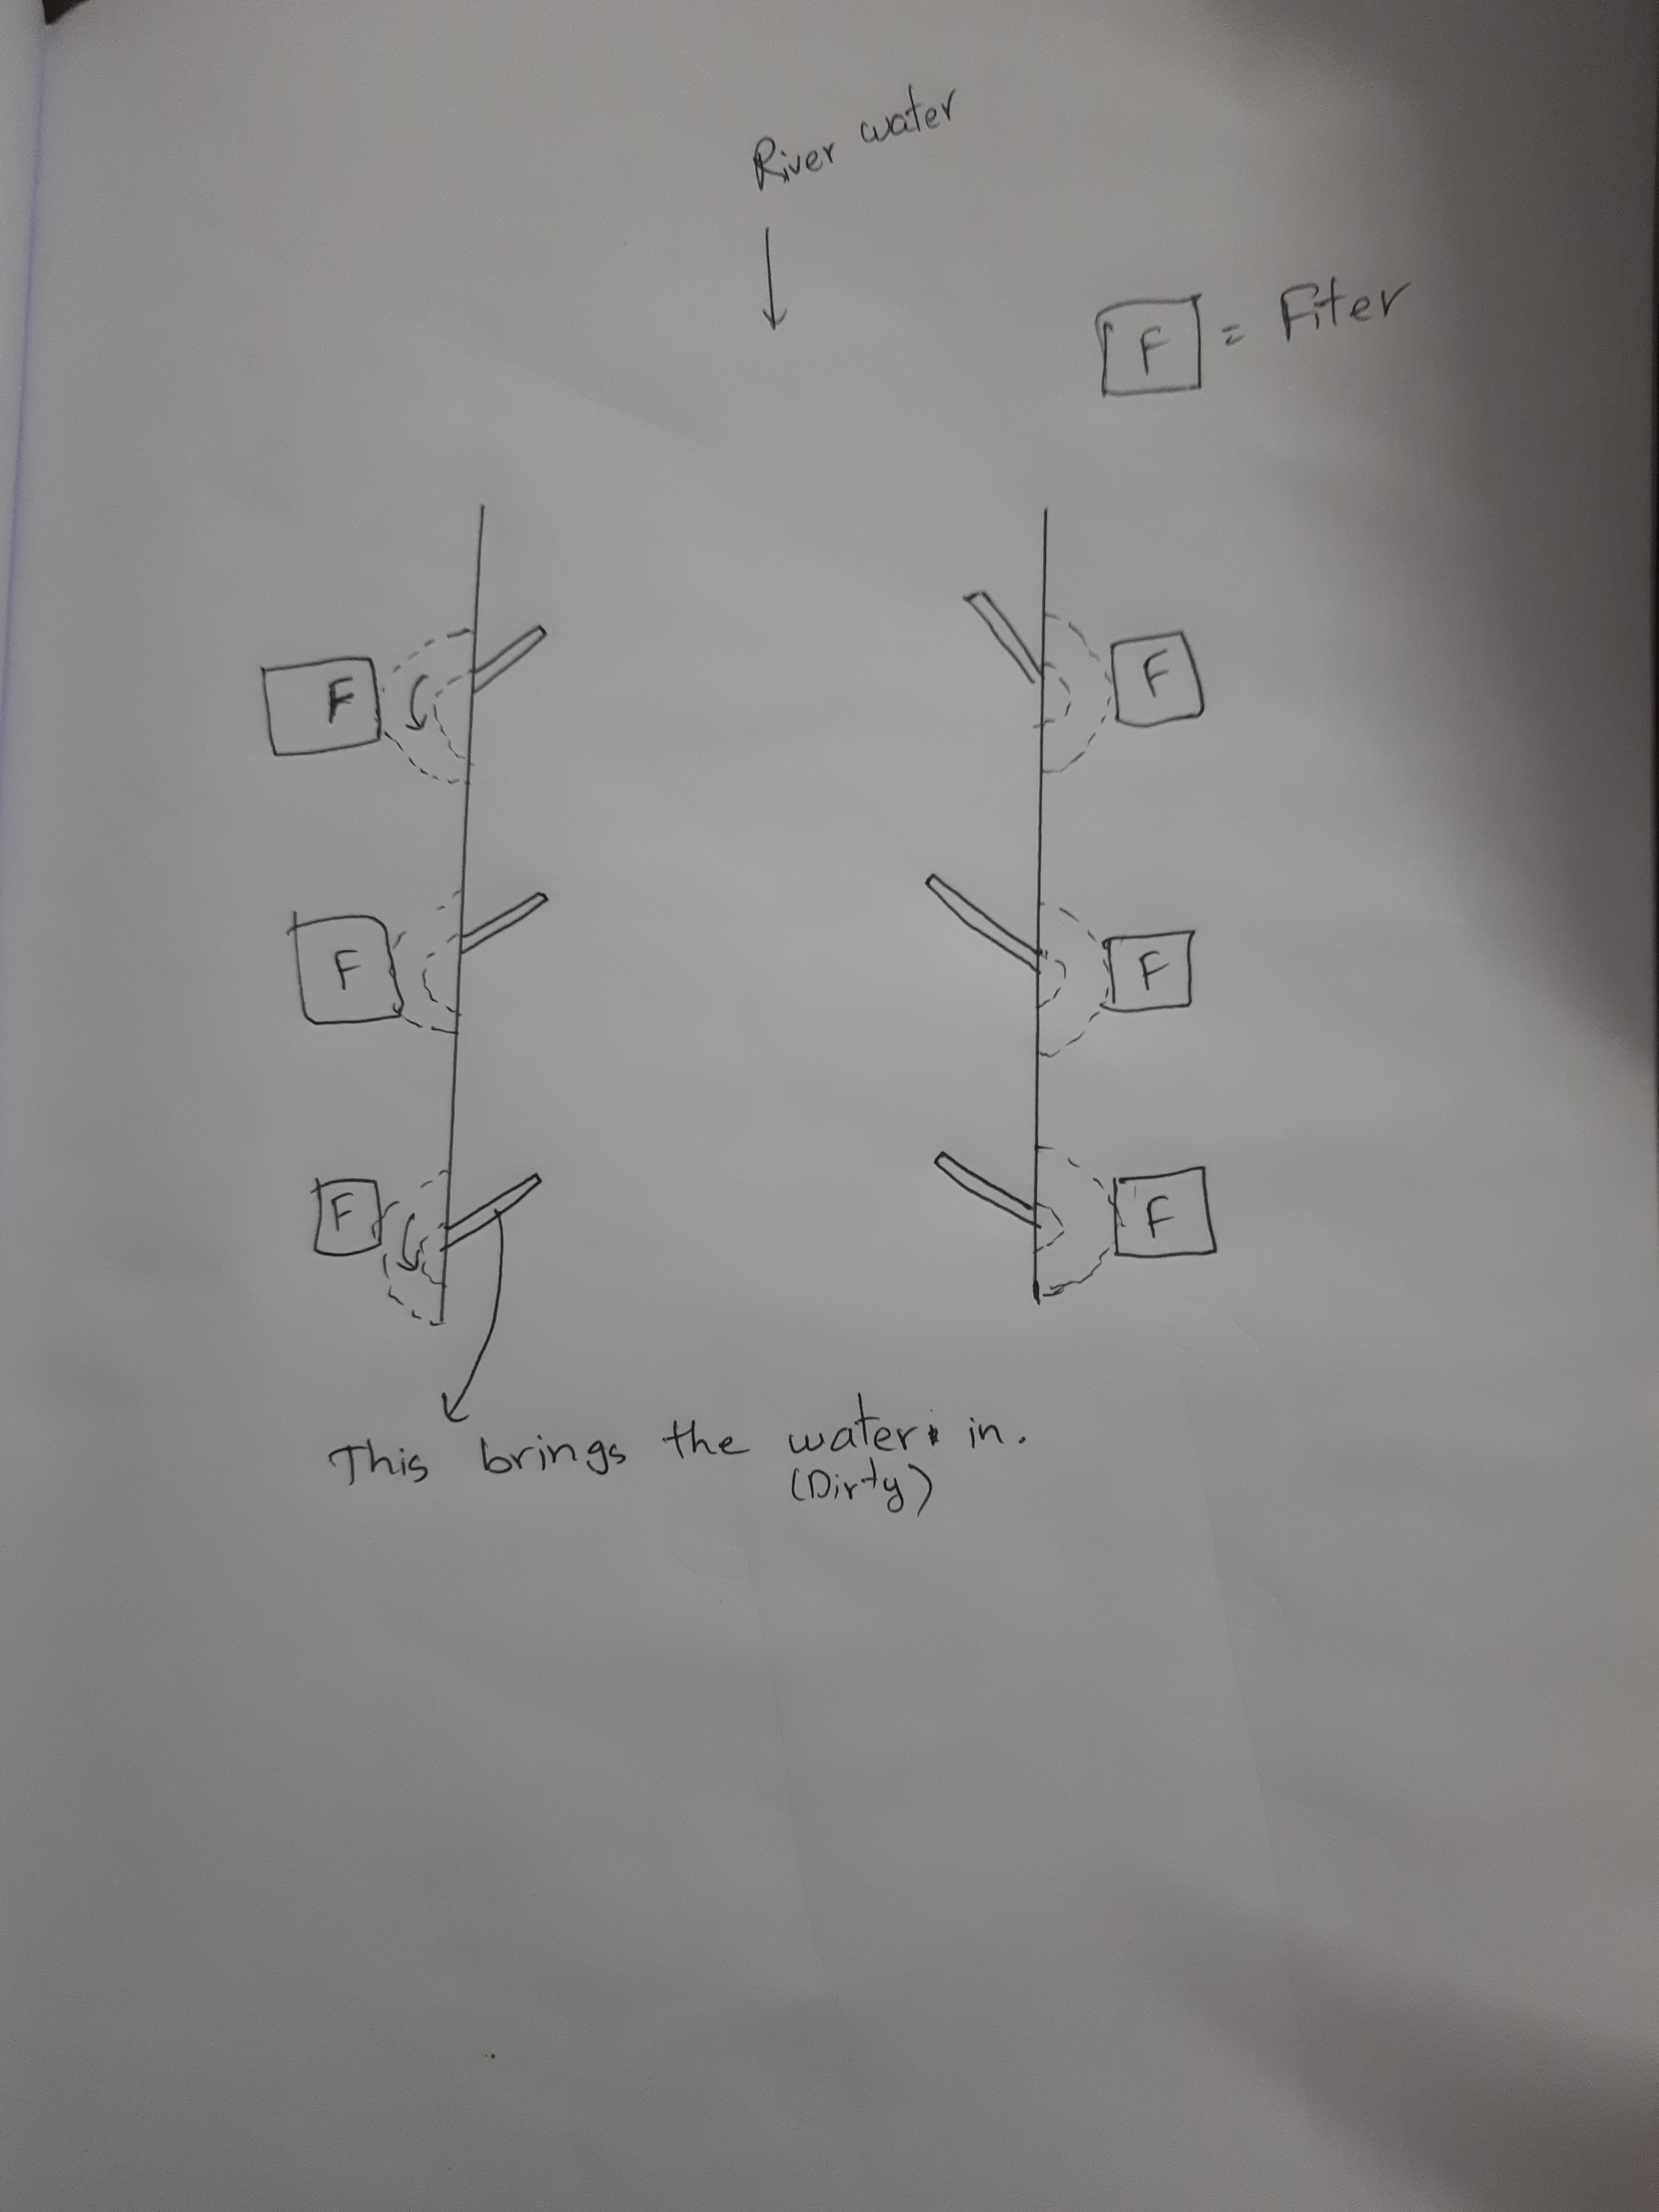 River water
F = Fiter
F
F
F
F
F
F
This brings the water in.
(Dirty)